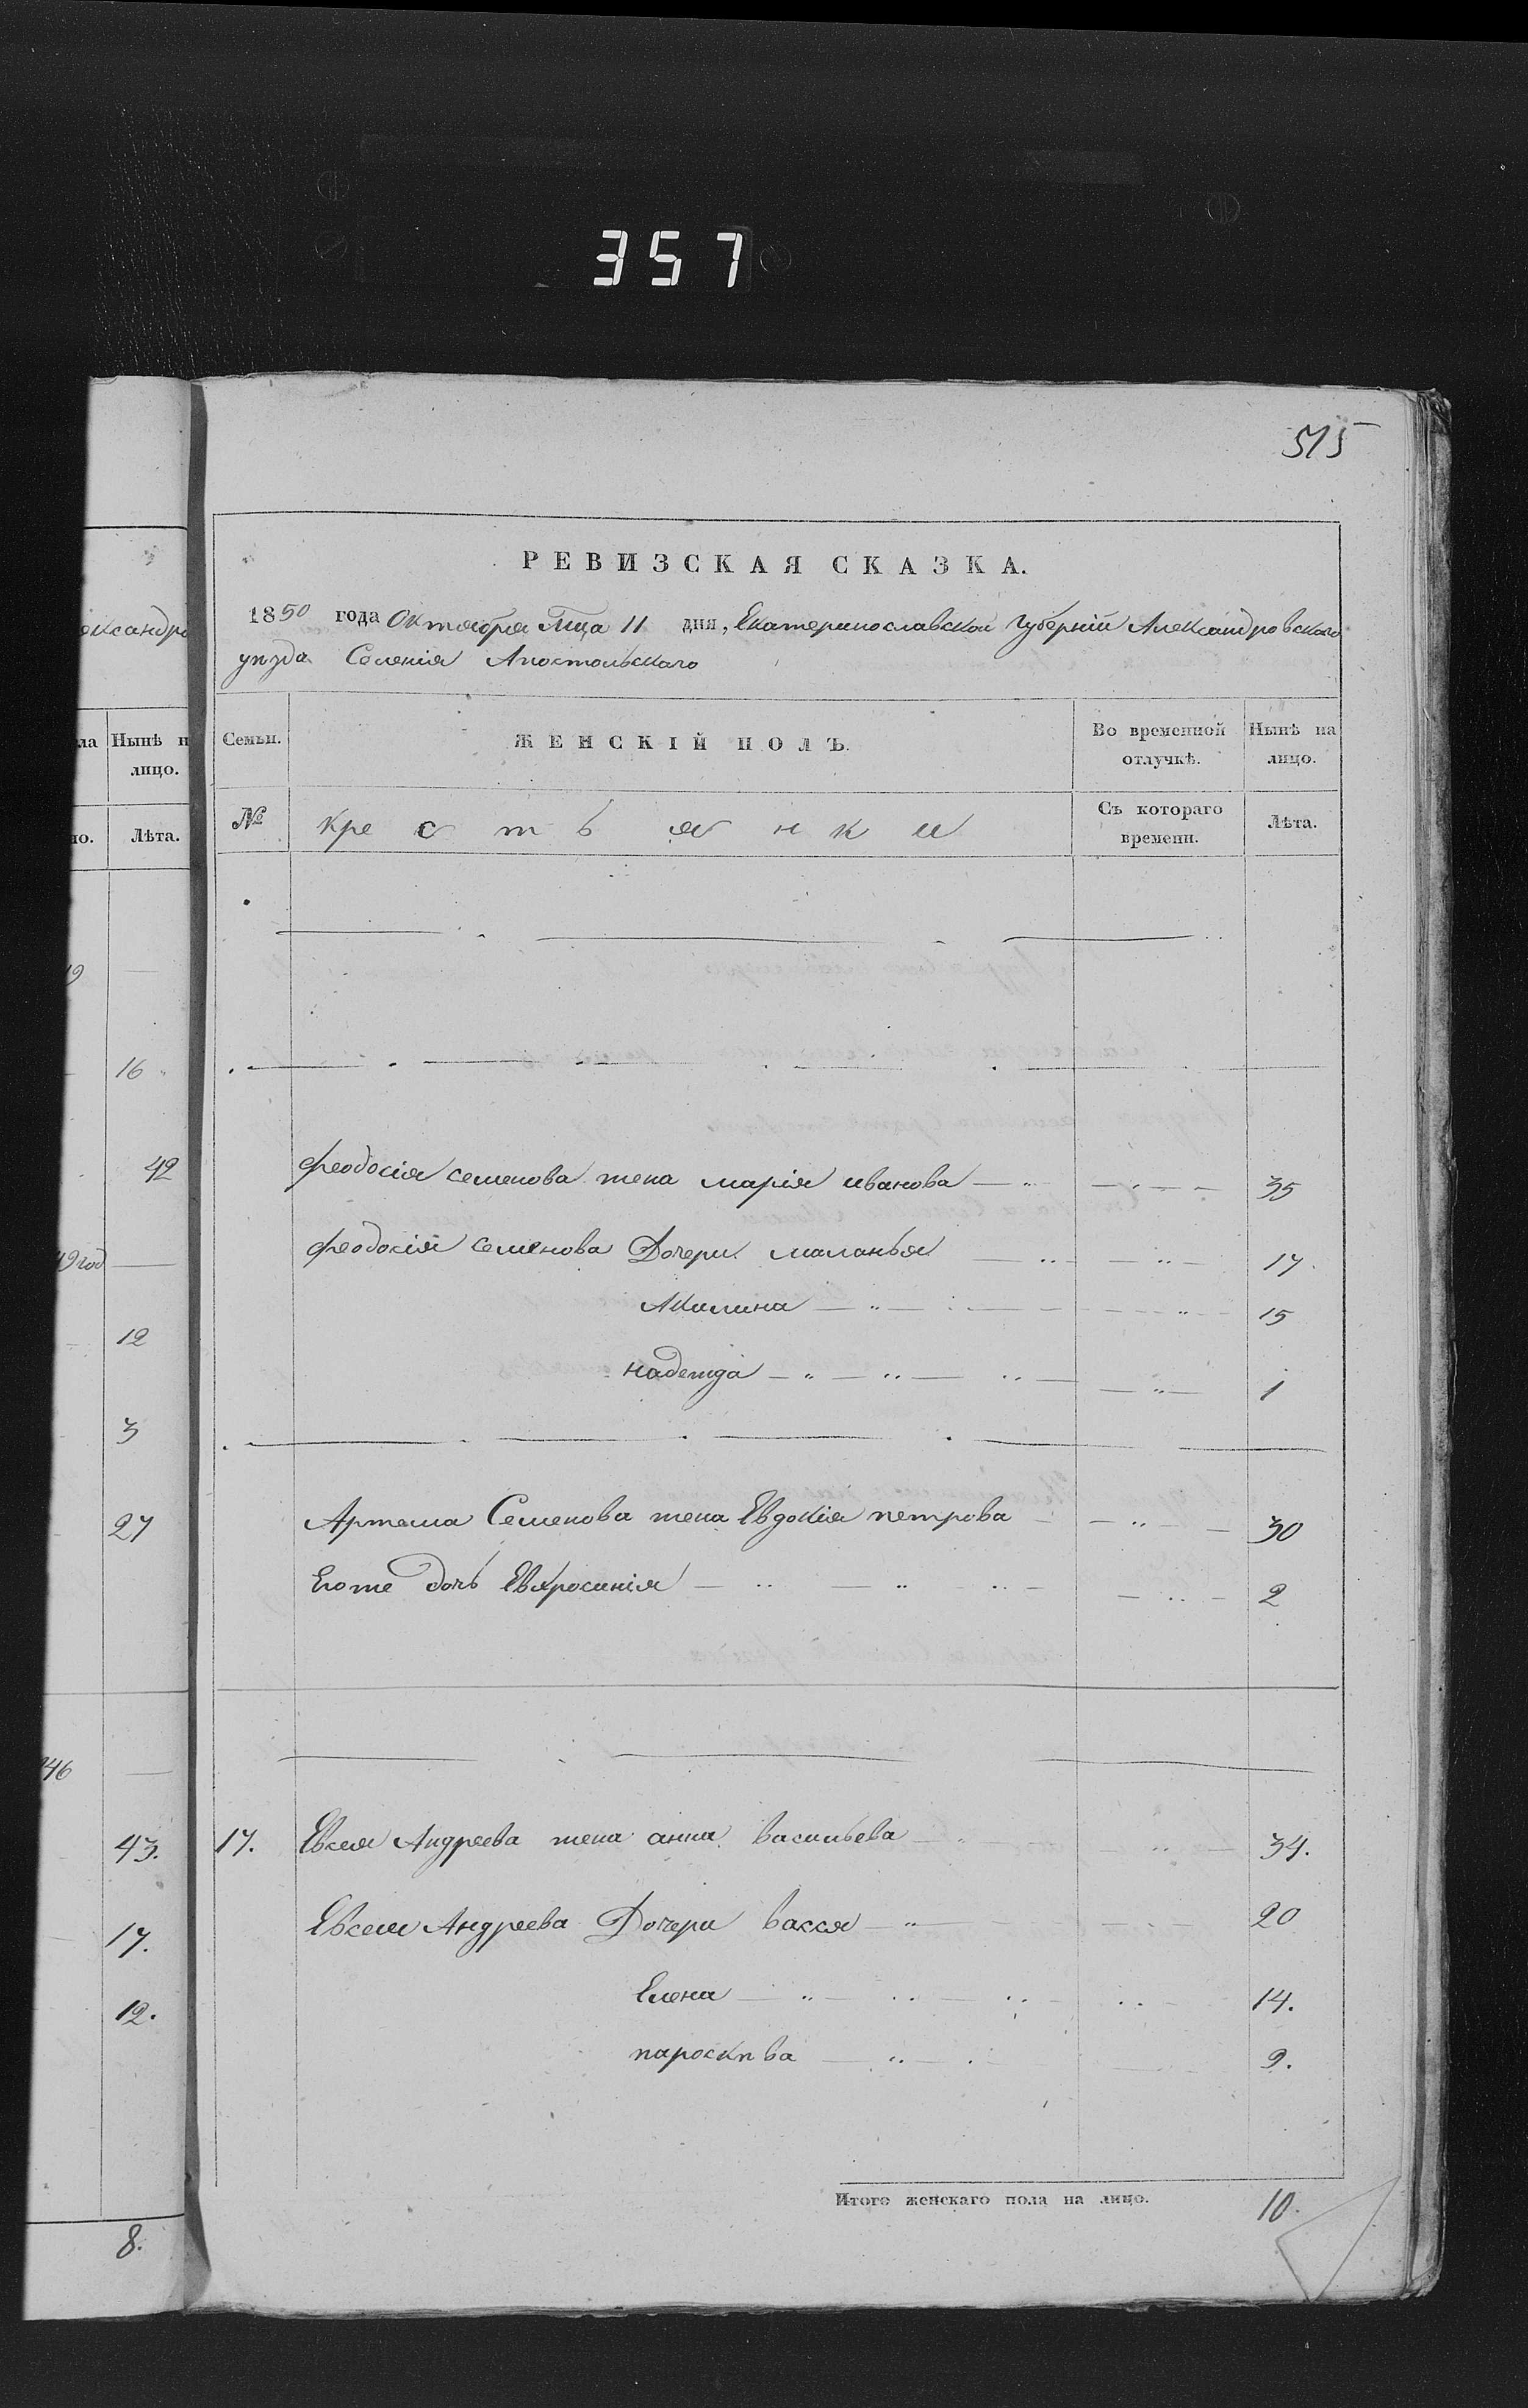 357
515
РЕВИЗСКАЯ СКАЗКА.
1850 года Октября Мца 11 дня, Екатеринославской Губерніи Александровскаго
уезда Селенія Апостольскаго
Семьи. ЖЕНСКІЙ ПОЛЪ. Во временной отлучкѣ. Нынѣ на лицо.
№ крестьянки Съ котораго времени. Лѣта.
Феодосія семенова жена марія иванова 35
Феодосія семенова Дочери маланья 17.
Акилина 15
надежда 1
Артема Семенова жена Евдокія петрова 30
Егоже дочь Евфросинія 2
17. Евсея Андреева жена анна васильева 34.
Евсея Андреева Дочери васса 20
Елена 14.
параскева 9.
Итого женскаго пола на лицо. 10.
Нынѣ
лицо.
Лѣта.
16
42
год
12
3
27
46
43.
17.
12.
8.